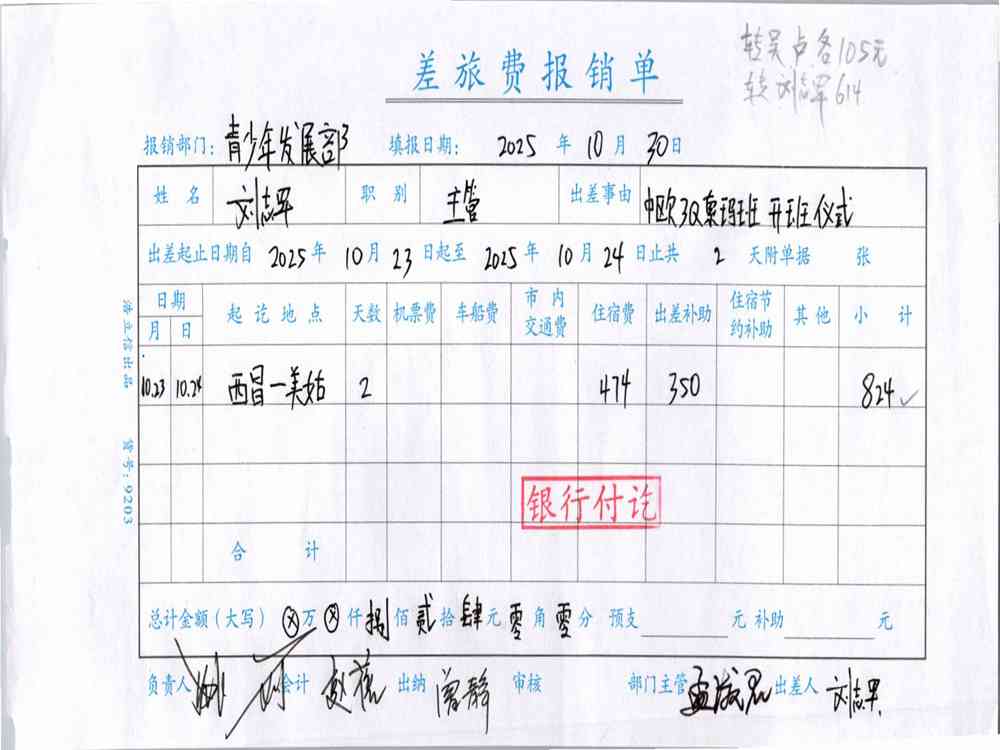 转吴卢各105元
转刘志军614
差旅费报销单
报销部门：青少年发展部 填报日期： 2025 年 10 月 30 日
姓 名 刘志军 职 别 主管 出差事由 中欧3Q索玛班开班仪式
出差起止日期自 2025 年 10 月 23 日起至 2025 年 10 月 24 日止共 2 天附单据 张
日期 起 讫 地 点 天数 机票费 车船费 市内交通费 住宿费 出差补助 住宿节约补助 其他 小 计
月 日
10.23 10.24 西昌—美姑 2 474 350 824 ✓
银行付讫
合 计
总计金额（大写） ⊗ 万 ⊗ 仟 捌 佰 贰 拾 肆 元 零 角 零 分 预支 元 补助 元
负责人 会计 出纳 曾静 审核 部门主管 出差人 刘志军
浩立信出品 货号：9203